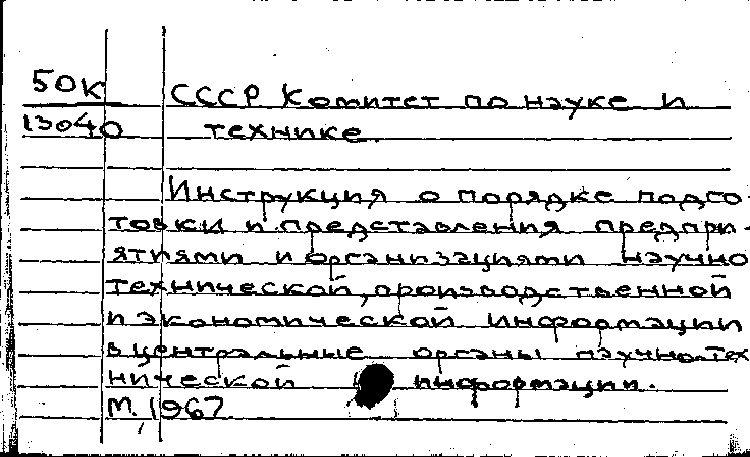 50К СССР Комитет по науке и
13040 технике.
Инструкция о порядке подго-
товки и представления предпри-
ятиями и организациями научно
технической, производственной
и экономической информации
в центральные органы научно-тех
нической информации.
М. 1967